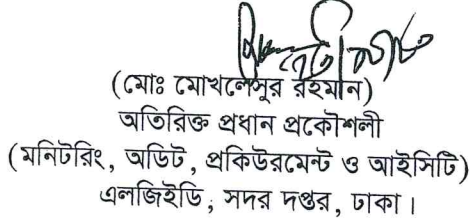 (মোঃ মোখলেসুর রহমান)
অতিরিক্ত প্রধান প্রকৌশলী
(মনিটরিং, অডিট, প্রকিউরমেন্ট ও আইসিটি)
এলজিইডি, সদর দপ্তর, ঢাকা।